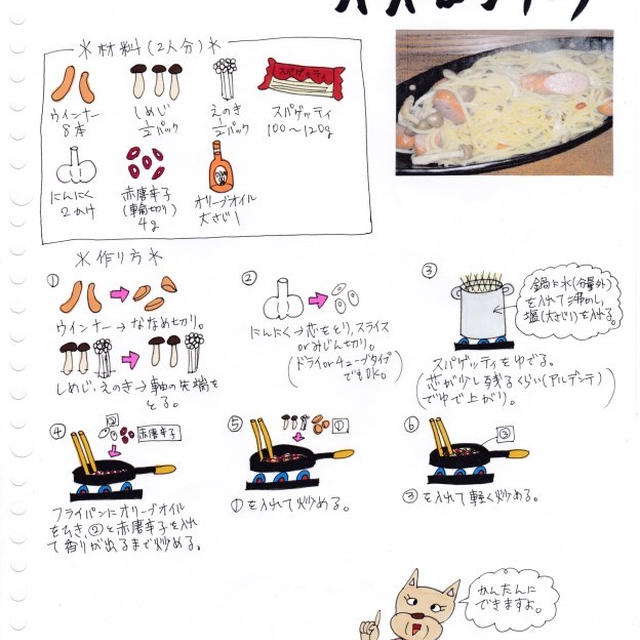 ＊材料(2人分)＊
ウインナー
8本
しめじ
1/2パック
えのき
1/2パック
スパゲッティ
スパゲッティ
100〜120g
にんにく
2かけ
赤唐辛子
(輪切り)
4g
オリーブオイル
大さじ1
＊作り方＊
①
ウインナー→ななめ切り。
しめじ・えのき→軸の先端を
とる。
②
にんにく→芯をとり、スライス
orみじん切り。
(ドライorチューブタイプ
でもOK。)
③
鍋に水(分量外)
を入れて沸かし、
塩(大さじ1)を入れる。
スパゲッティをゆでる。
(芯が少し残るくらい(アルデンテ)
でゆで上がり。)
④
②
赤唐辛子
フライパンにオリーブオイル
をひき、②と赤唐辛子を入れ
て香りが出るまで炒める。
⑤
①
①を入れて炒める。
⑥
③
③を入れて軽く炒める。
かんたんに
できますよ。